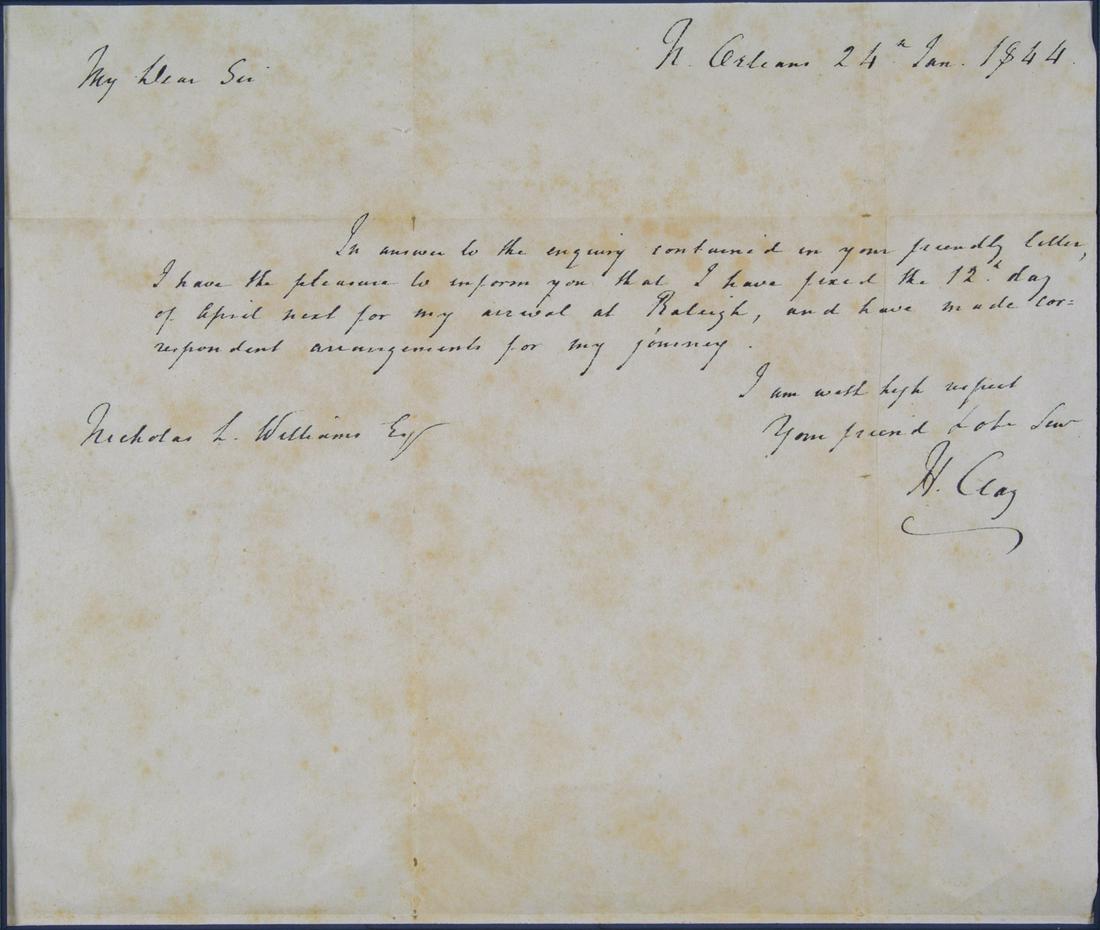 N. Orleans 24h Jan. 1844.
My Dear Sir
In answer to the enquiry contained in your friendly letter,
I have the pleasure to inform you that I have fixed the 12h day
of April next for my arrival at Raleigh, and have made cor=
respondent arrangements for my journey.
I am with high respect
Your friend & ob. Serv
Nicholas L. Williams Esq
H. Clay